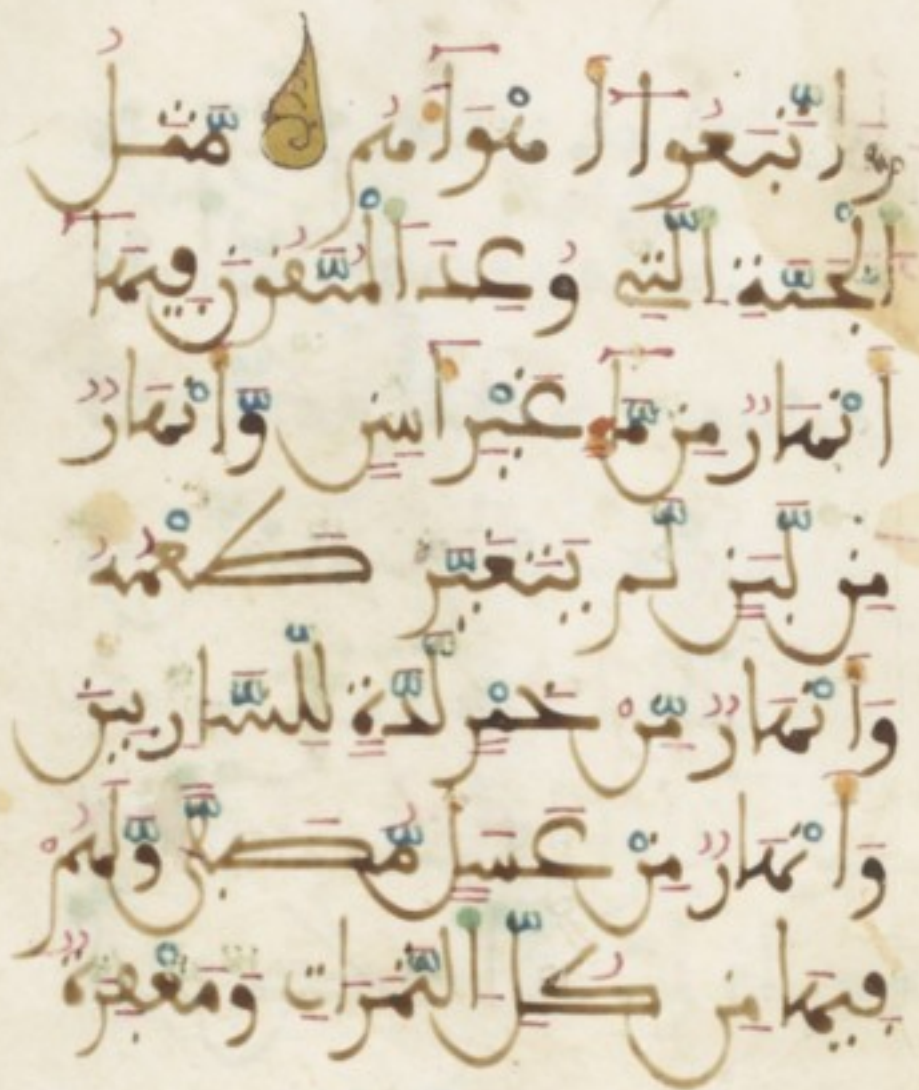 وَاتَّبَعُوا أَهْوَآءَهُم مَّثَلُ
الْجَنَّةِ الَّتِي وُعِدَ الْمُتَّقُونَ فِيهَآ
أَنْهَارٌ مِّن مَّآءٍ غَيْرِ ءَاسِنٍ وَأَنْهَارٌ
مِّن لَّبَنٍ لَّمْ يَتَغَيَّرْ طَعْمُهُ
وَأَنْهَارٌ مِّنْ خَمْرٍ لَّذَّةٍ لِّلشَّارِبِينَ
وَأَنْهَارٌ مِّنْ عَسَلٍ مُّصَفًّى وَلَهُمْ
فِيهَا مِن كُلِّ الثَّمَرَاتِ وَمَغْفِرَةٌ